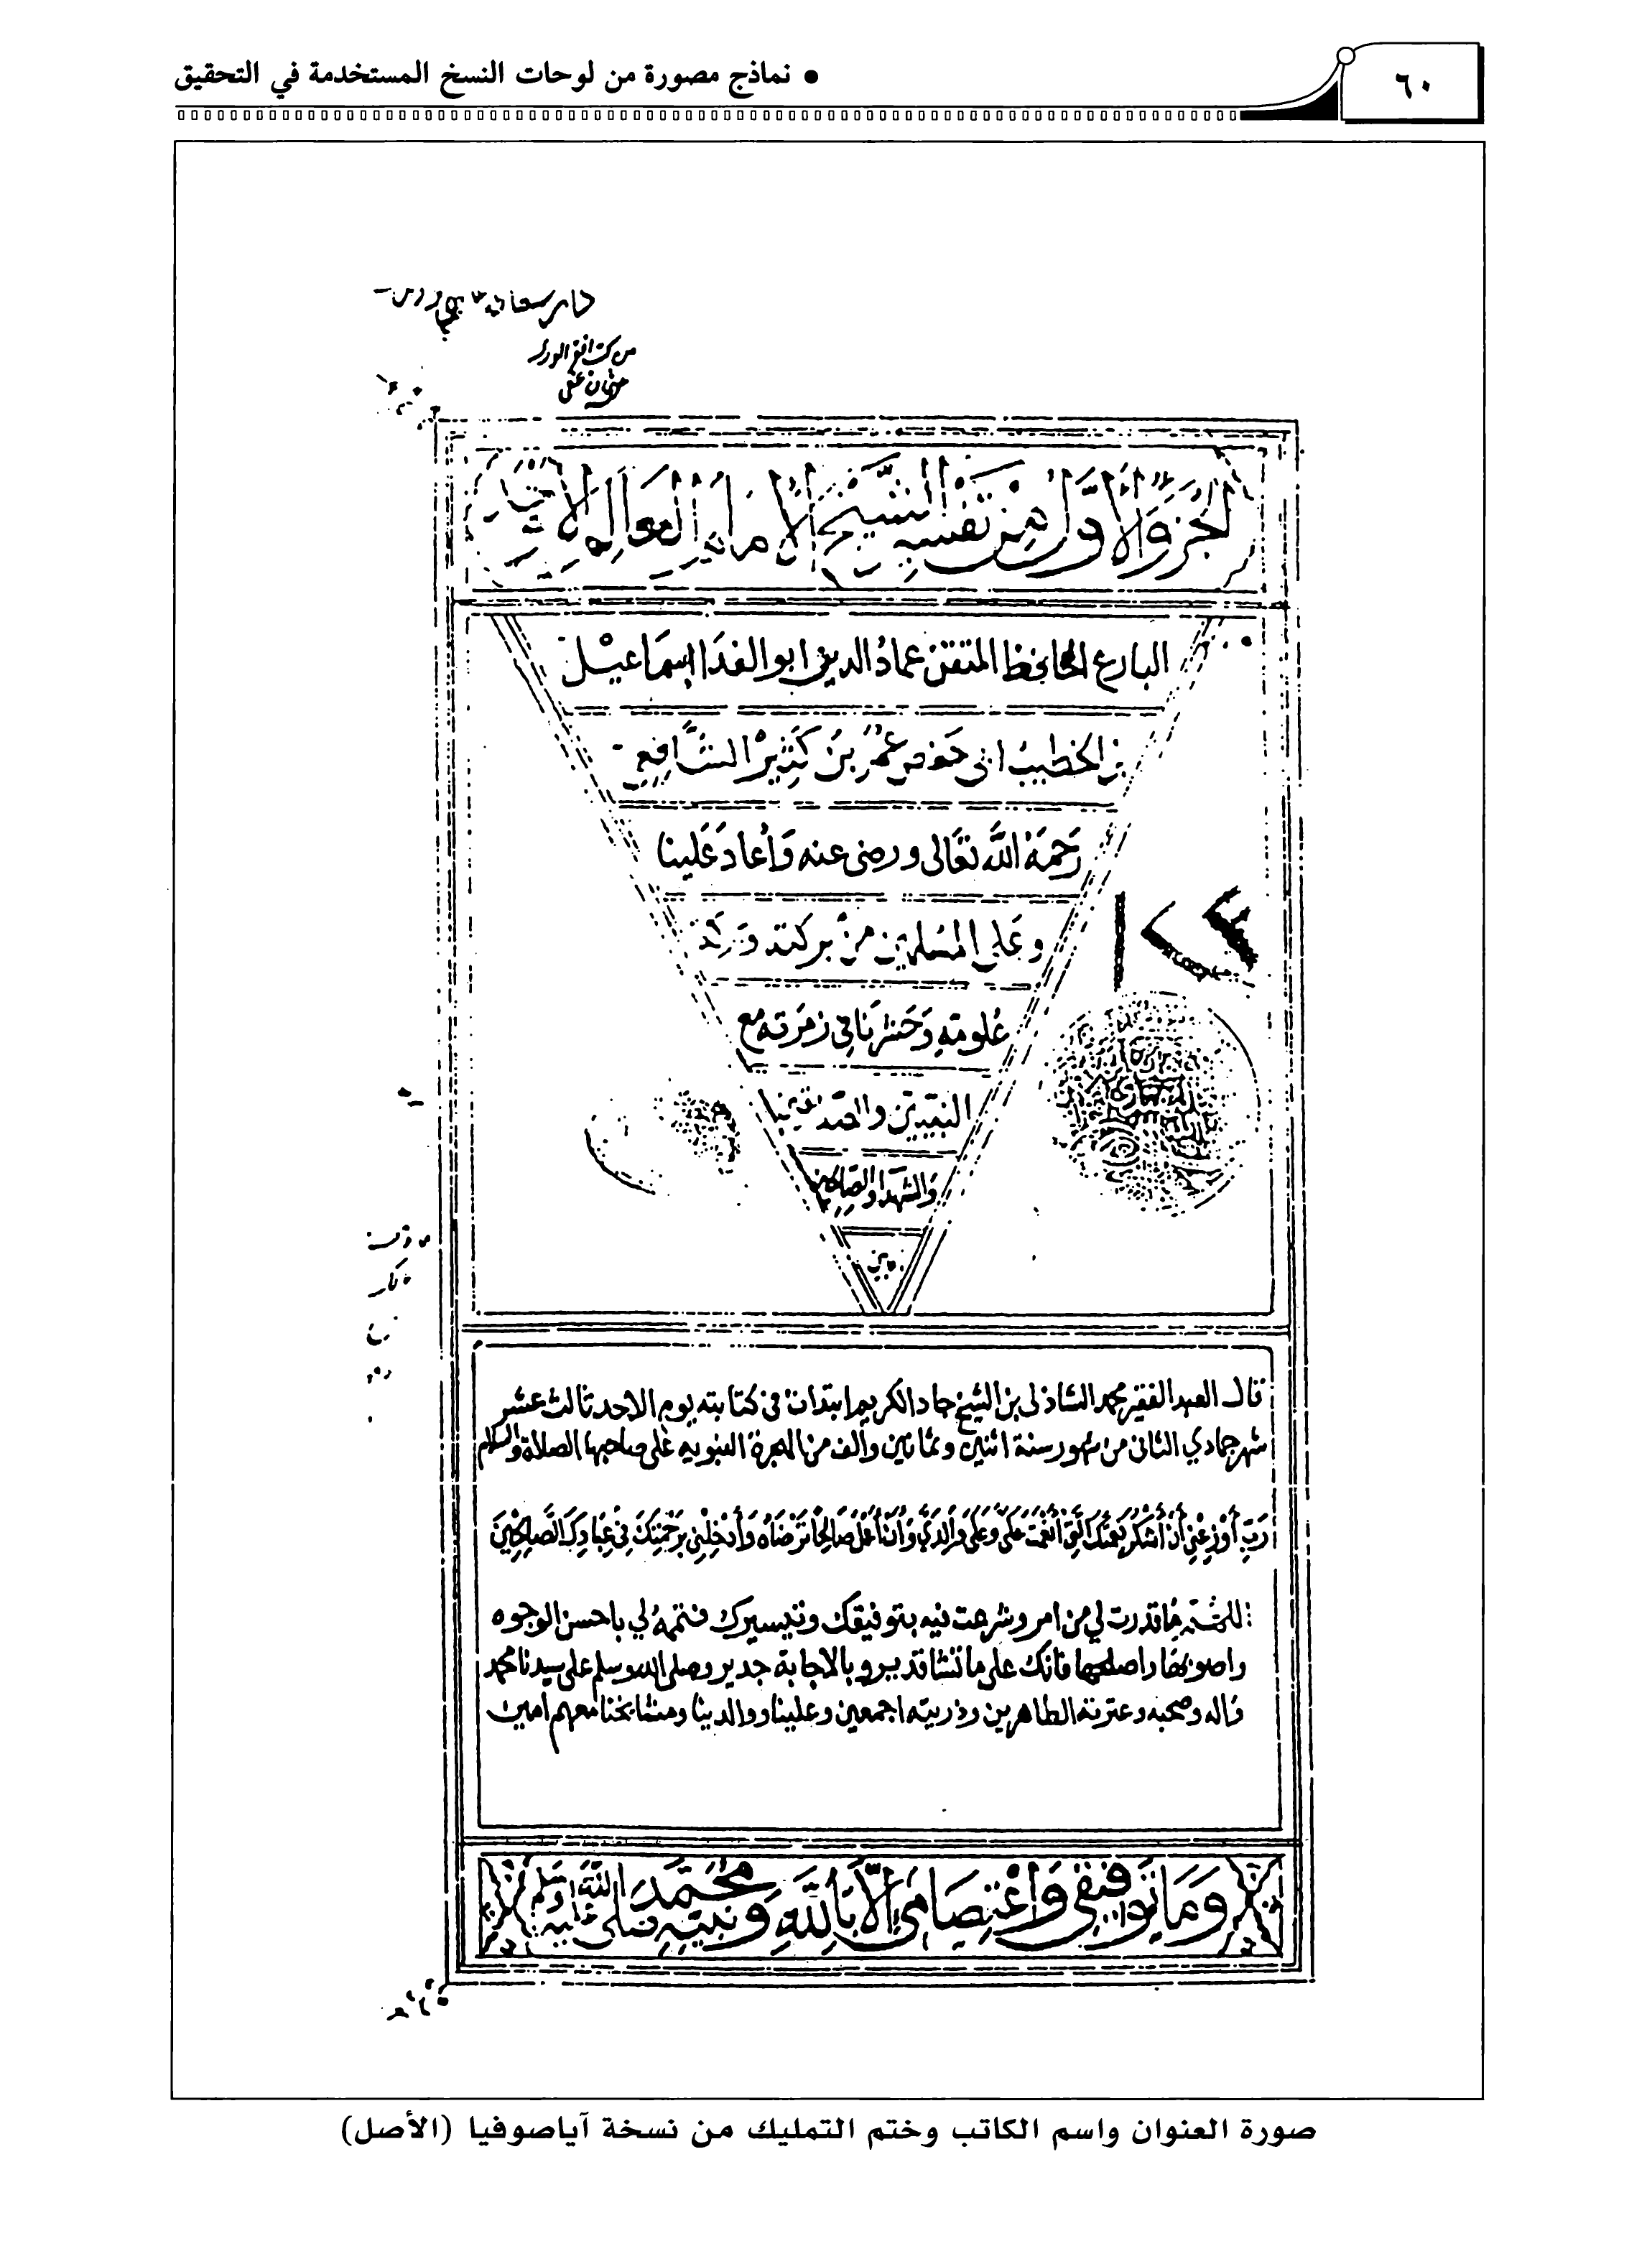 ٦٠
• نماذج مصورة من لوحات النسخ المستخدمة في التحقيق
الجزؤ الأول من تفسير الشيخ الامام العالم
البارع الحافظ المتقن عماد الدين ابو الفدا اسماعيل
بن الخطيب ابى حفص عمر بن كثير الشافعي
رحمة الله تعالى ورضى عنه وأعاد علينا
وعلى المسلمين من بركته
علومه وحشرنا في زمرته مع
النبيين
والشهدا والصالحين
قال العبد الفقير محمد الشاذلى بن الشيخ جاد الكريم ابتدات في كتابته يوم الاحد ثالث عشر
شهر جمادي الثانى من شهور سنة اثنين وثمانين والف من الهجرة النبويه على صاحبها الصلاة والسلام
رَبِّ أَوْزِعْنِي أَنْ أَشْكُرَ نِعْمَتَكَ الَّتِي أَنْعَمْتَ عَلَيَّ وَعَلَى وَالِدَيَّ وَأَنْ أَعْمَلَ صَالِحًا تَرْضَاهُ وَأَدْخِلْنِي بِرَحْمَتِكَ فِي عِبَادِكَ الصَّالِحِينَ
قدرت لي من امر وشرعت فيه بتوفيقك وتيسيرك فتممه لي باحسن الوجوه
واصوبها واصلحها فانك على ما تشا قدير وبالاجابة جدير وصلى الله وسلم على سيدنا محمد
واله وصحبه وعترته الطاهرين وذريته اجمعين وعلينا ووالدينا ومشايخنا معهم امين
وما توفيقي واعتصامي الا بالله ونبيه محمد صلى الله عليه وسلم
صورة العنوان واسم الكاتب وختم التمليك من نسخة آياصوفيا (الأصل)